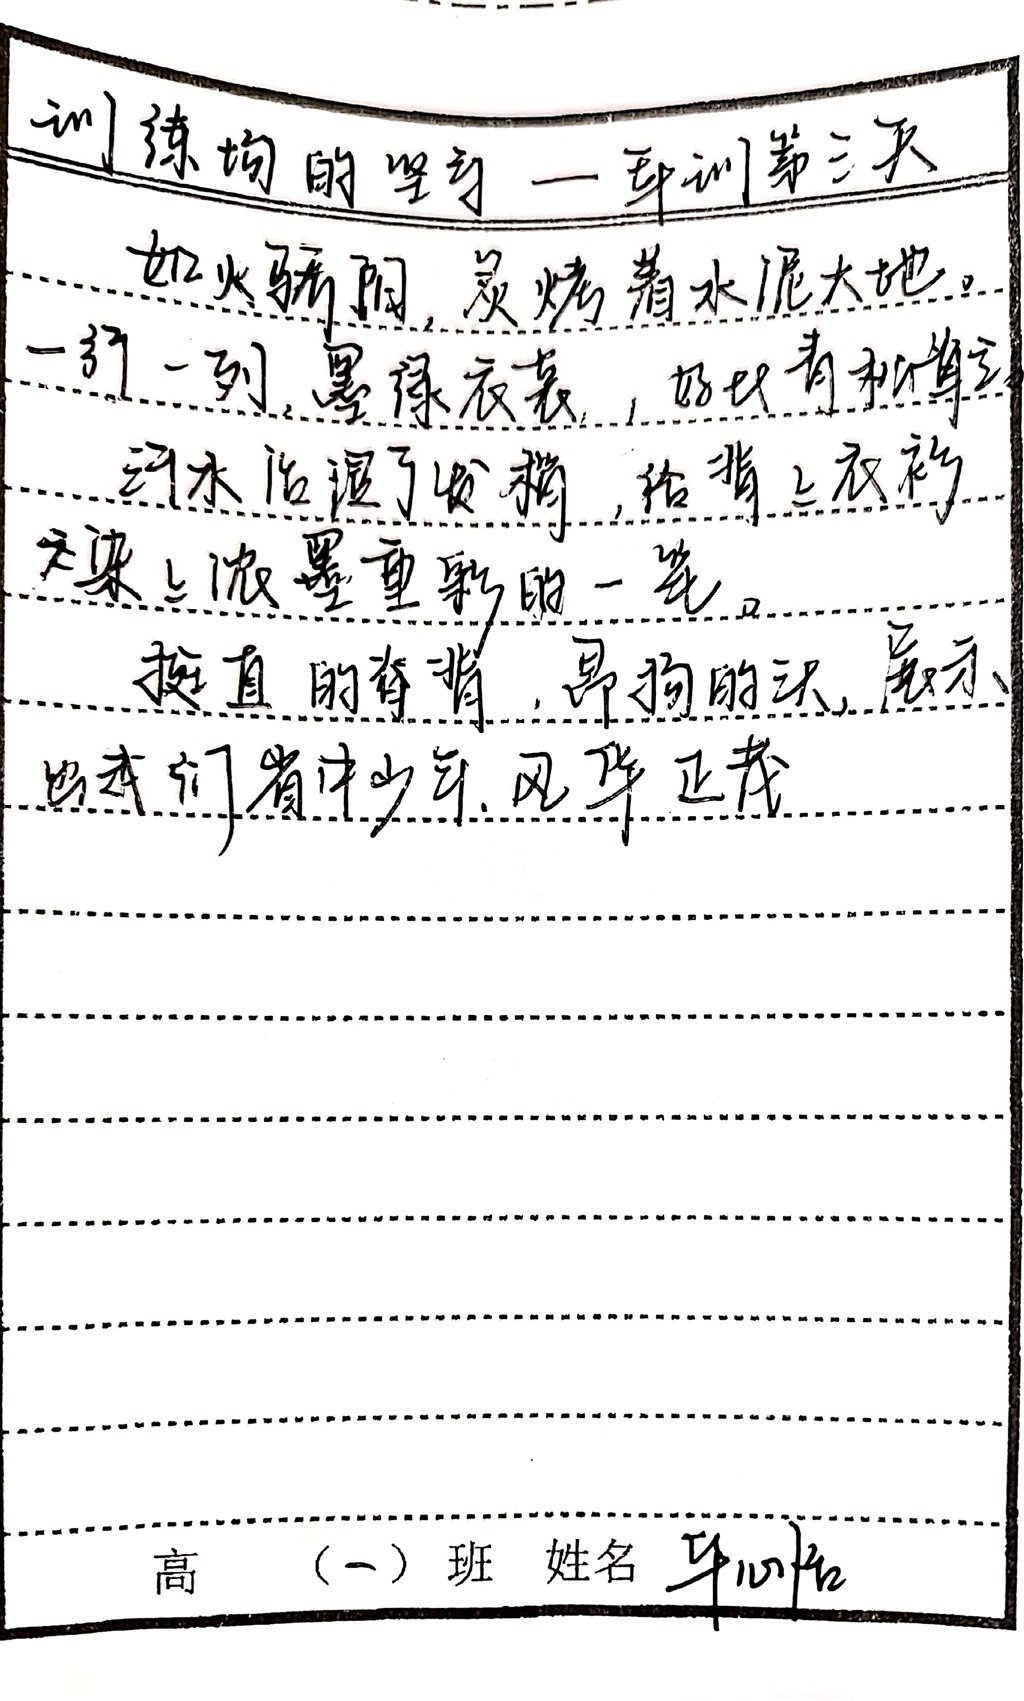 训练场的坚守一军训第三天
如火骄阳,炙烤着水泥大地。
一行一列,墨绿衣裳,好比青松耸立。
汗水沾湿了发梢,给背上衣衫
渲染上浓墨重彩的一笔。
挺直的脊背,昂扬的头,展示
出我们省中少年,风华正茂
高 (一) 班 姓名